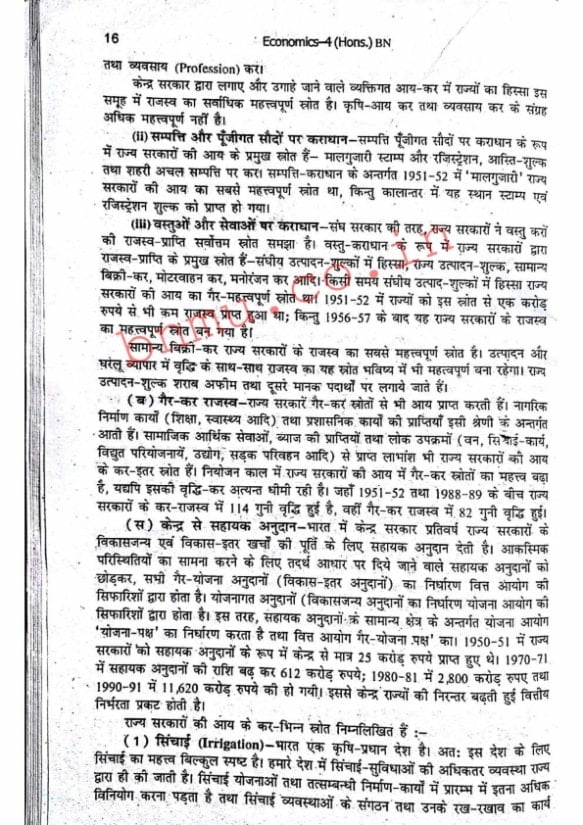 16
Economics–4 (Hons.) BN
तथा व्यवसाय (Profession) कर।
केन्द्र सरकार द्वारा लगाए और उगाहे जाने वाले व्यक्तिगत आय-कर में राज्यों का हिस्सा इस
समूह में राजस्व का सर्वाधिक महत्त्वपूर्ण स्रोत है। कृषि-आय कर तथा व्यवसाय कर के संग्रह
अधिक महत्त्वपूर्ण नहीं है।
(ii) सम्पत्ति और पूँजीगत सौदों पर कराधान–सम्पत्ति पूँजीगत सौदों पर कराधान के रूप
में राज्य सरकारों की आय के प्रमुख स्रोत हैं– मालगुजारी स्टाम्प और रजिस्ट्रेशन, आस्ति-शुल्क
तथा शहरी अचल सम्पत्ति पर कर। सम्पत्ति-कराधान के अन्तर्गत 1951-52 में 'मालगुजारी' राज्य
सरकारों की आय का सबसे महत्त्वपूर्ण स्रोत था, किन्तु कालान्तर में यह स्थान स्टाम्प एवं
रजिस्ट्रेशन शुल्क को प्राप्त हो गया।
(iii) वस्तुओं और सेवाओं पर कराधान–संघ सरकार की तरह, राज्य सरकारों ने वस्तु करों
की राजस्व-प्राप्ति सर्वोत्तम स्रोत समझा है। वस्तु-कराधान के रूप में राज्य सरकारों द्वारा
राजस्व-प्राप्ति के प्रमुख स्रोत हैं–संघीय उत्पादन-शुल्कों में हिस्सा, राज्य उत्पादन-शुल्क, सामान्य
बिक्री-कर, मोटरवाहन कर, मनोरंजन कर आदि। किसी समय संघीय उत्पाद-शुल्कों में हिस्सा राज्य
सरकारों की आय का गैर-महत्त्वपूर्ण स्रोत था। 1951-52 में राज्यों को इस स्रोत से एक करोड़
रुपये से भी कम राजस्व प्राप्त हुआ था; किन्तु 1956-57 के बाद यह राज्य सरकारों के राजस्व
का महत्त्वपूर्ण स्रोत बन गया है।
सामान्य बिक्री-कर राज्य सरकारों के राजस्व का सबसे महत्त्वपूर्ण स्रोत है। उत्पादन और
घरेलू व्यापार में वृद्धि के साथ-साथ राजस्व का यह स्रोत भविष्य में भी महत्त्वपूर्ण बना रहेगा। राज्य
उत्पादन-शुल्क शराब अफीम तथा दूसरे मानक पदार्थों पर लगाये जाते हैं।
(ब) गैर-कर राजस्व–राज्य सरकारें गैर-कर स्रोतों से भी आय प्राप्त करती हैं। नागरिक
निर्माण कार्यों (शिक्षा, स्वास्थ्य आदि) तथा प्रशासनिक कार्यों की प्राप्तियाँ इसी श्रेणी के अन्तर्गत
आती हैं। सामाजिक आर्थिक सेवाओं, ब्याज की प्राप्तियों तथा लोक उपक्रमों (वन, सिंचाई-कार्य,
विद्युत परियोजनायें, उद्योग, सड़क परिवहन आदि) से प्राप्त लाभांश भी राज्य सरकारों की आय
के कर-इतर स्रोत हैं। नियोजन काल में राज्य सरकारों की आय में गैर-कर स्रोतों का महत्त्व बढ़ा
है, यद्यपि इसकी वृद्धि-कर अत्यन्त धीमी रही है। जहाँ 1951-52 तथा 1988-89 के बीच राज्य
सरकारों के कर-राजस्व में 114 गुनी वृद्धि हुई है, वहीं गैर-कर राजस्व में 82 गुनी वृद्धि हुई।
(स) केन्द्र से सहायक अनुदान–भारत में केन्द्र सरकार प्रतिवर्ष राज्य सरकारों के
विकासजन्य एवं विकास-इतर खर्चों की पूर्ति के लिए सहायक अनुदान देती है। आकस्मिक
परिस्थितियों का सामना करने के लिए तदर्थ आधार पर दिये जाने वाले सहायक अनुदानों को
छोड़कर, सभी गैर-योजना अनुदानों (विकास-इतर अनुदानों) का निर्धारण वित्त आयोग की
सिफारिशों द्वारा होता है। योजनागत अनुदानों (विकासजन्य अनुदानों का निर्धारण योजना आयोग की
सिफारिशों द्वारा होता है। इस तरह, सहायक अनुदानों के सामान्य क्षेत्र के अन्तर्गत योजना आयोग
'योजना-पक्ष' का निर्धारण करता है तथा वित्त आयोग गैर-योजना पक्ष' का। 1950-51 में राज्य
सरकारों को सहायक अनुदानों के रूप में केन्द्र से मात्र 25 करोड़ रुपये प्राप्त हुए थे। 1970-71
में सहायक अनुदानों की राशि बढ़ कर 612 करोड़ रुपये; 1980-81 में 2,800 करोड़ रुपए तथा
1990-91 में 11,620 करोड़ रुपये की हो गयी। इससे केन्द्र राज्यों की निरन्तर बढ़ती हुई वित्तीय
निर्भरता प्रकट होती है।
राज्य सरकारों की आय के कर-भिन्न स्रोत निम्नलिखित हैं :–
(1) सिंचाई (Irrigation)–भारत एक कृषि-प्रधान देश है। अतः इस देश के लिए
सिंचाई का महत्त्व बिल्कुल स्पष्ट है। हमारे देश में सिंचाई-सुविधाओं की अधिकतर व्यवस्था राज्य
द्वारा ही की जाती है। सिंचाई योजनाओं तथा तत्सम्बन्धी निर्माण-कार्यों में प्रारम्भ में इतना अधिक
विनियोग करना पड़ता है तथा सिंचाई व्यवस्थाओं के संगठन तथा उनके रख-रखाव का कार्य
bnmu.co.in